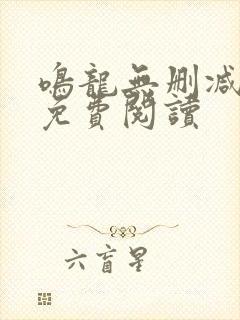 鳴龍無删减
免費閱讀
六盲星